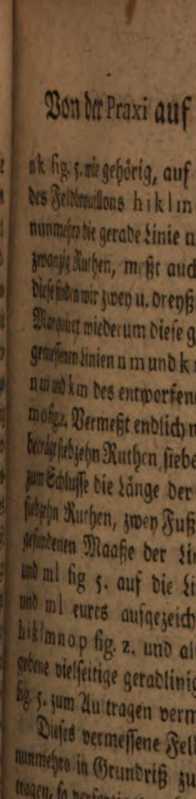 Von der Praxi auf
fig. 5. wie gehörig, auf
des Feldbouillons h i k l m
nunmehro die gerade Linie u
zwanzig Ruthen, meßt auch
diese finden wir zwey u. dreyß
wiederum diese g
gemessenen Linien u m und k
und k m des entworfen
Vermeßt endlich
siebzehn Ruthen, siebe
zum Schlusse die Länge der
siebzehn Ruthen, zwey Fuß
gefundenen Maaße der Li
und m l fig. 5. auf die Li
und m l eures aufgezeich
h i k l m n o p fig. 2. und al
gebene vielseitige geradlinig
fig. 5. zum Auftragen verm
Dieses vermessene Fel
nunmehro in Grundriß zu
tragen, so